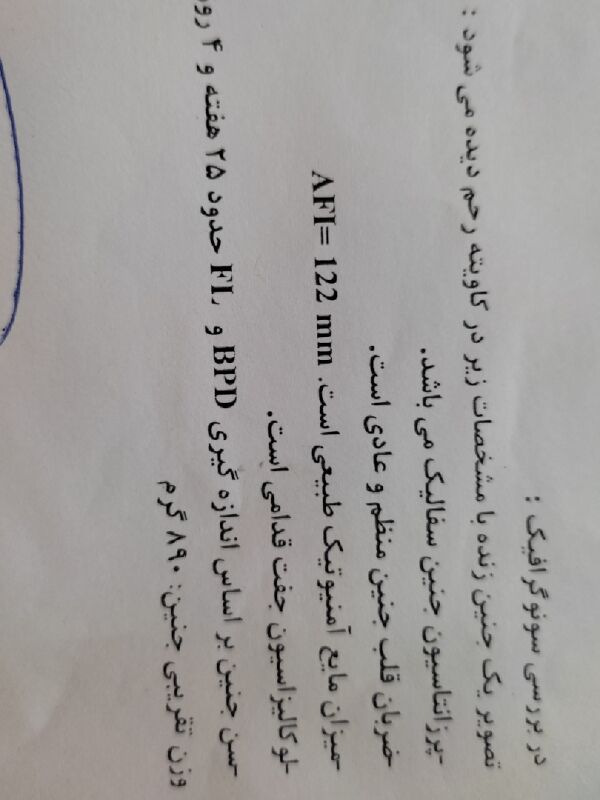 در بررسی سونوگرافیک :
تصویر یک جنین زنده با مشخصات زیر در کاویته رحم دیده می شود :
-پرزانتاسیون جنین سفالیک می باشد.
-ضربان قلب جنین منظم و عادی است.
-میزان مایع آمنیوتیک طبیعی است. AFI= 122 mm
-لوکالیزاسیون جفت قدامی است.
-سن جنین بر اساس اندازه گیری BPD و FL حدود ۲۵ هفته و ۴ رو
وزن تقریبی جنین: ۸۹۰ گرم